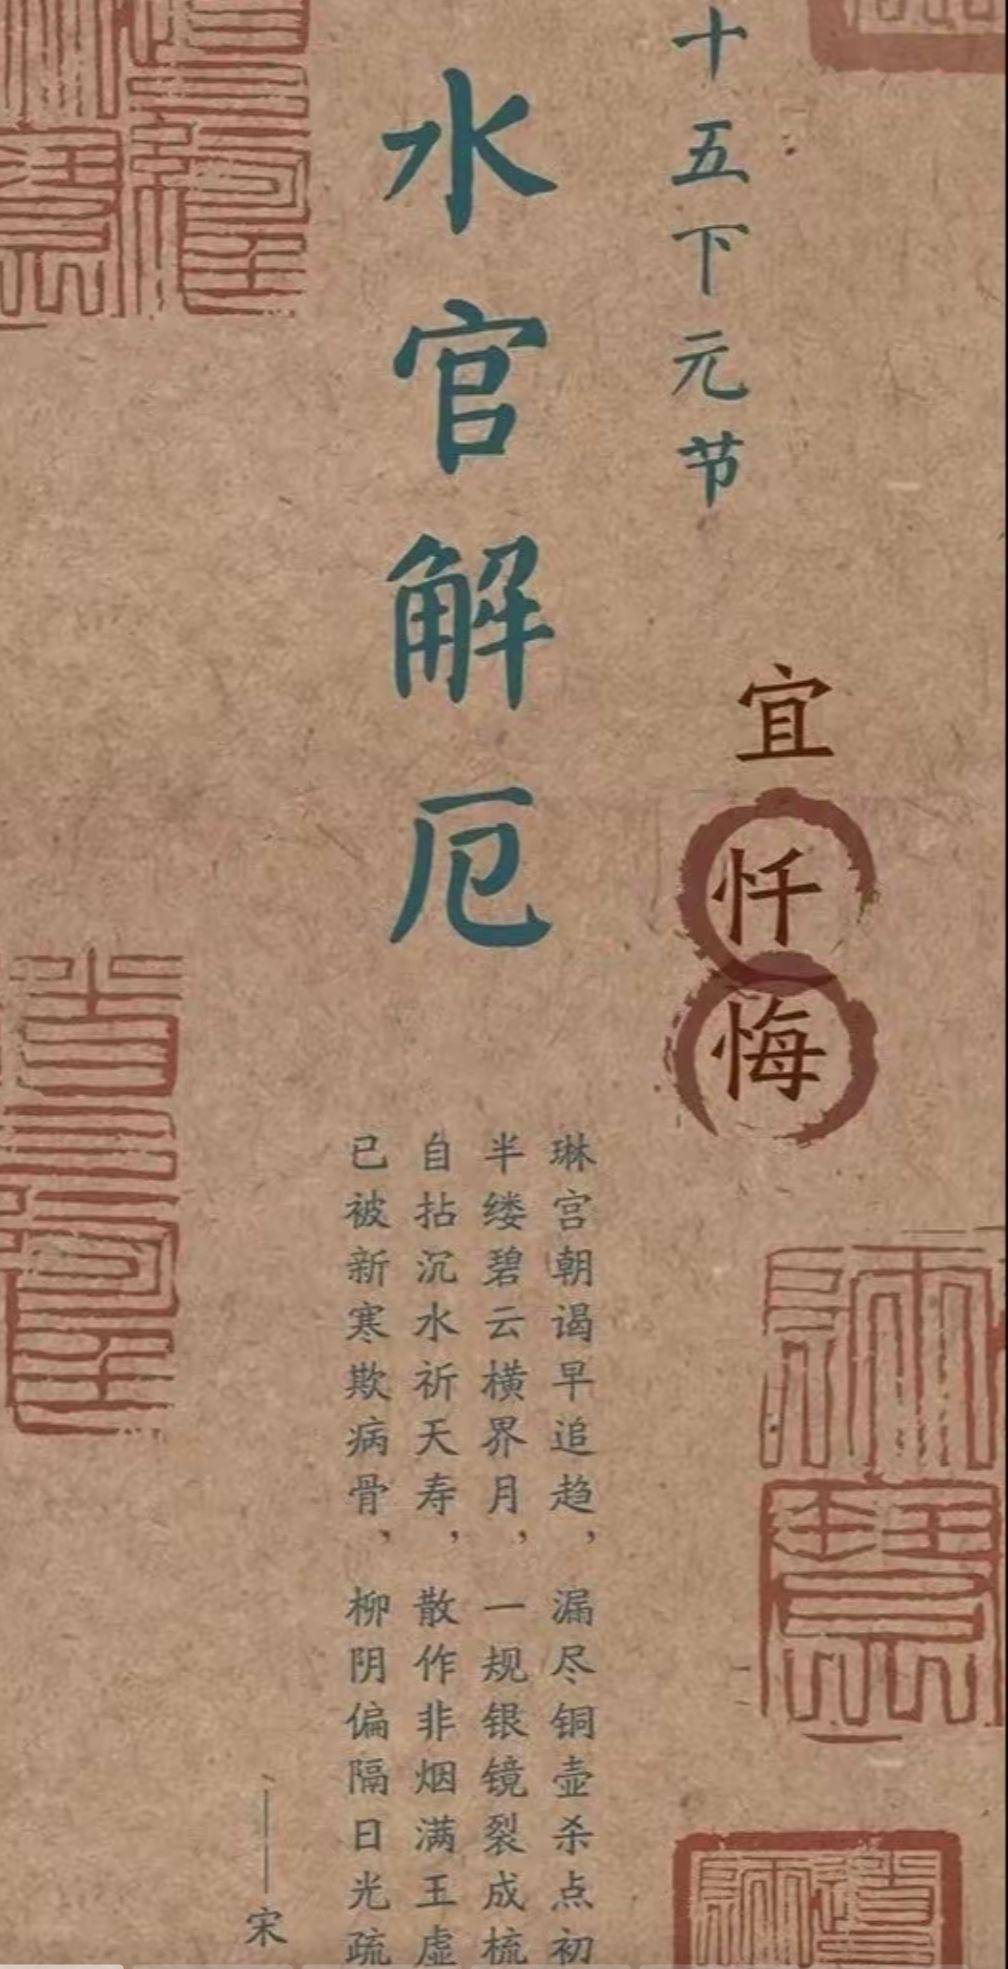 十五下元节
宜
忏
悔
水官解厄
琳宫朝谒早追趋，漏尽铜壶杀点初
半缕碧云横界月，一规银镜裂成梳
自拈沉水祈天寿，散作非烟满王虚
已被新寒欺病骨，柳阴偏隔日光疏
——宋